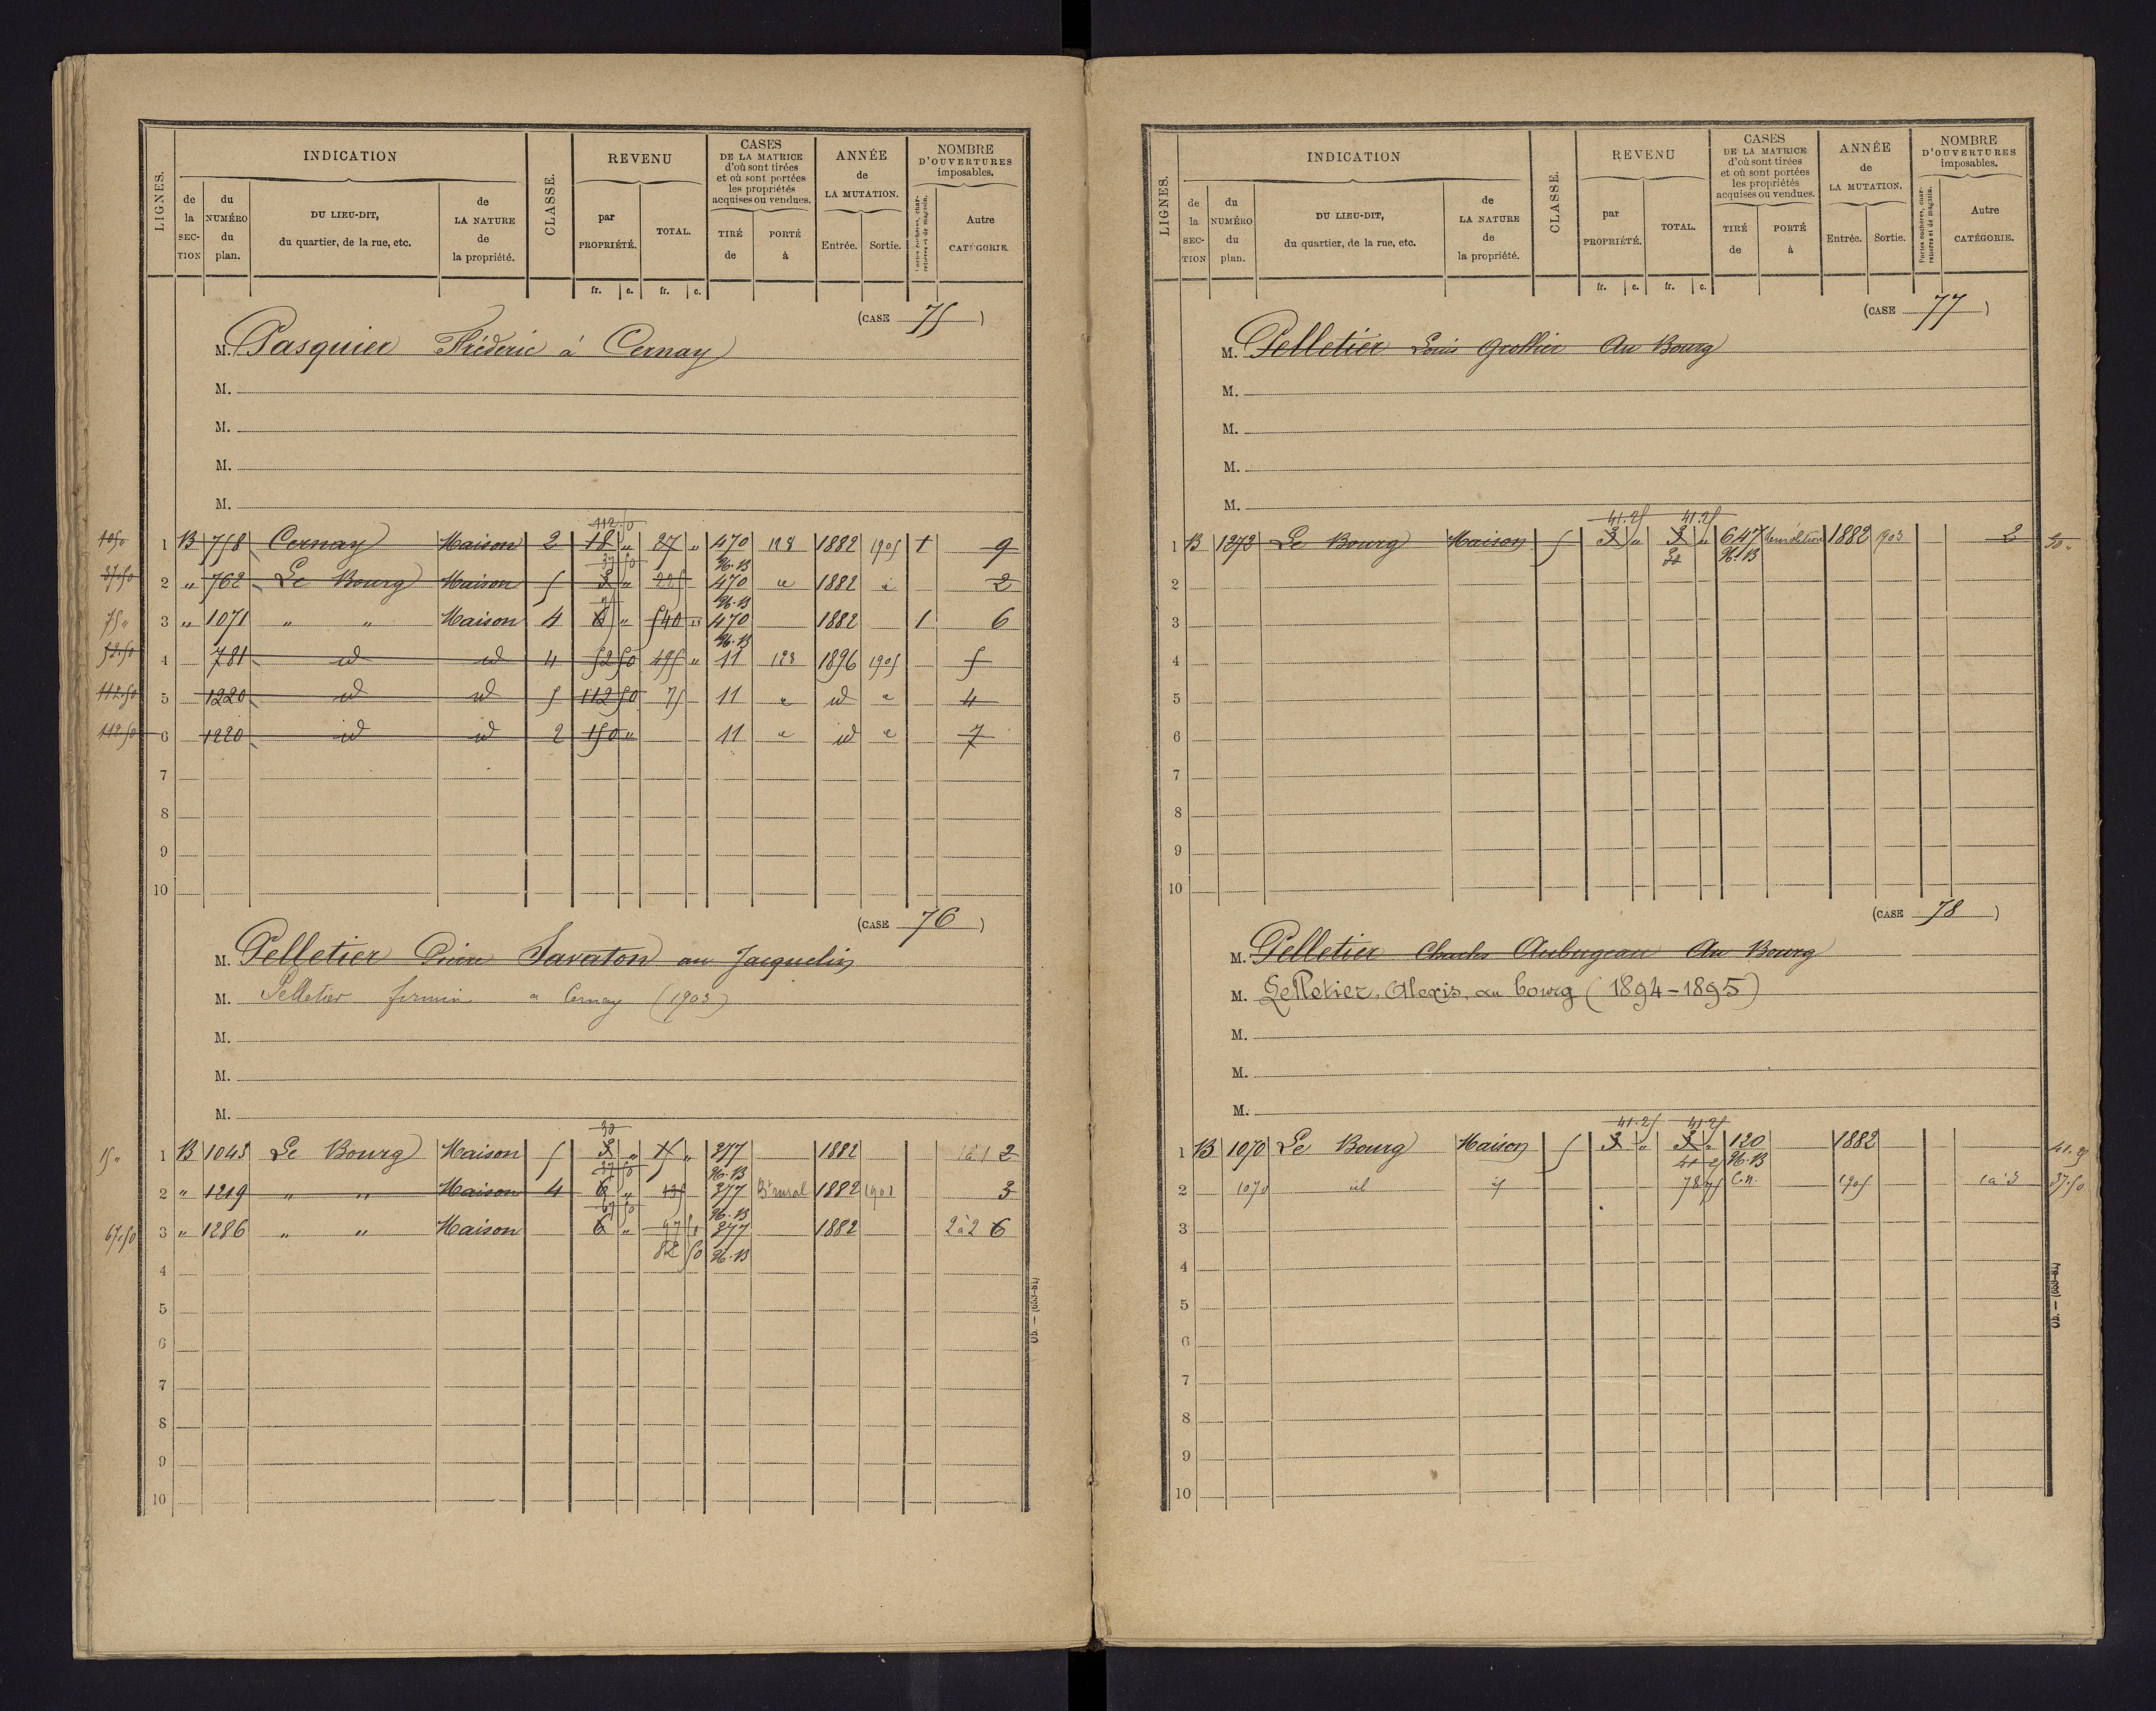 LIGNES.
INDICATION
de la SECTION
du NUMÉRO du plan.
DU LIEU-DIT, du quartier, de la rue, etc.
de LA NATURE de la propriété.
CLASSE.
REVENU
par PROPRIÉTÉ.
TOTAL.
fr. c. fr. c.
CASES DE LA MATRICE d'où sont tirées et où sont portées les propriétés acquises ou vendues.
TIRÉ de
PORTÉ à
ANNÉE de LA MUTATION.
Entrée. Sortie.
NOMBRE D'OUVERTURES imposables.
Portes cochères, charretières et de magasin.
Autre CATÉGORIE.
(CASE 75)
M. Pasquier Fréderic à Cernay
M.
M.
M.
M.
112.50
1 B 758 Cernay Maison 2 18 " 27 " 470 128 1882 1905 1 9
37.50 37 50 N.B
2 " 762 Le Bourg Maison 5 3 " 225 470 " 1882 " 2
75 N.B
75 " 3 " 1071 " " Maison 4 6 " 540 " 470 1882 1 6
N.B
52.50 4 781 id id 4 52 50 495 " 11 123 1896 1905 5
112.50 5 1220 id id 5 112 50 75 11 " id " 4
112.50 6 1220 id id 2 150 " 11 " id " 7
7
8
9
10
(CASE 76)
M. Pelletier Pierre Savaton au Jacquelin
M. Pelletier firmin a Cernay (1903)
M.
M.
M.
30
15 " 1 B 1043 Le Bourg Maison 5 3 " 277 1882 1 à 1 2
37 50 N.B
2 " 1219 " " Maison 4 6 " 135 277 Bt rural 1882 1901 3
67 50 N.B
67.50 3 " 1286 " " Maison 6 " 97 50 277 1882 2 à 2 6
82 50 N.B
4
5
6
7
8
9
10
LIGNES.
INDICATION
de la SECTION
du NUMÉRO du plan.
DU LIEU-DIT, du quartier, de la rue, etc.
de LA NATURE de la propriété.
CLASSE.
REVENU
par PROPRIÉTÉ.
TOTAL.
fr. c. fr. c.
CASES DE LA MATRICE d'où sont tirées et où sont portées les propriétés acquises ou vendues.
TIRÉ de
PORTÉ à
ANNÉE de LA MUTATION.
Entrée. Sortie.
NOMBRE D'OUVERTURES imposables.
Portes cochères, charretières et de magasin.
Autre CATÉGORIE.
(CASE 77)
M. Pelletier Louis Grollier Au Bourg
M.
M.
M.
M.
41.25 41.25
1 B 1272 Le Bourg Maison 5 3 " 3 " 647 demolition 1882 1903 2
N.B
2
3
4
5
6
7
8
9
10
(CASE 78)
M. Pelletier Charles Aubugeau Au Bourg
M. Pelletier, Alexis, au bourg (1894-1895)
M.
M.
M.
41.25 41.25
1 B 1070 Le Bourg Maison 5 3 " 3 " 120 1882 41.25
41 25 N.B
2 1070 id id 78 75 C.n. 1905 1 à 3 37.50
3
4
5
6
7
8
9
10